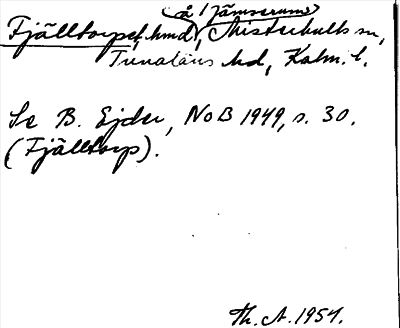 å Jämserums
Fjälltorps, hmd, Misterhults sn,
Tunaläns hd, Kalm. l.
Se B. Ejder, NoB 1949, s. 30.
(Fjälltorp).
Th. A. 1951.